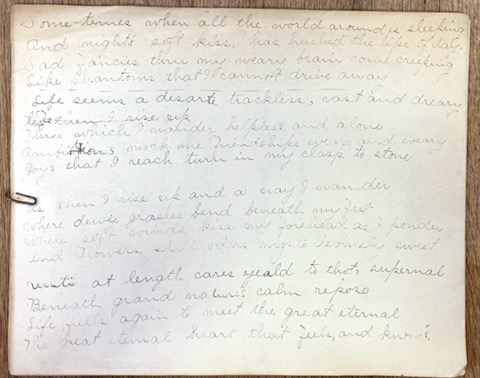 Some-times when all the world around is sleeping
And night's soft kiss, has hushed the lips of day
Sad fancies thru my weary brain come creeping
Like phantoms that I cannot drive away
Life seems a desarte trackless, vast and dreary
then I rise up
Thru which I wander helpless and alone
Ambitions mock me Friendships wear and weary
Joys that I reach turn in my clasp to stone
then I rise up and a way I wander
where dense grasses bend beneath my feet
Where soft winds kiss my forehead as I ponder
And flowers sweet
until at length cares yeald to thots supernal
Beneath grand nature's calm repose
Life again to meet the great eternal
The great eternal heart that feels and knows